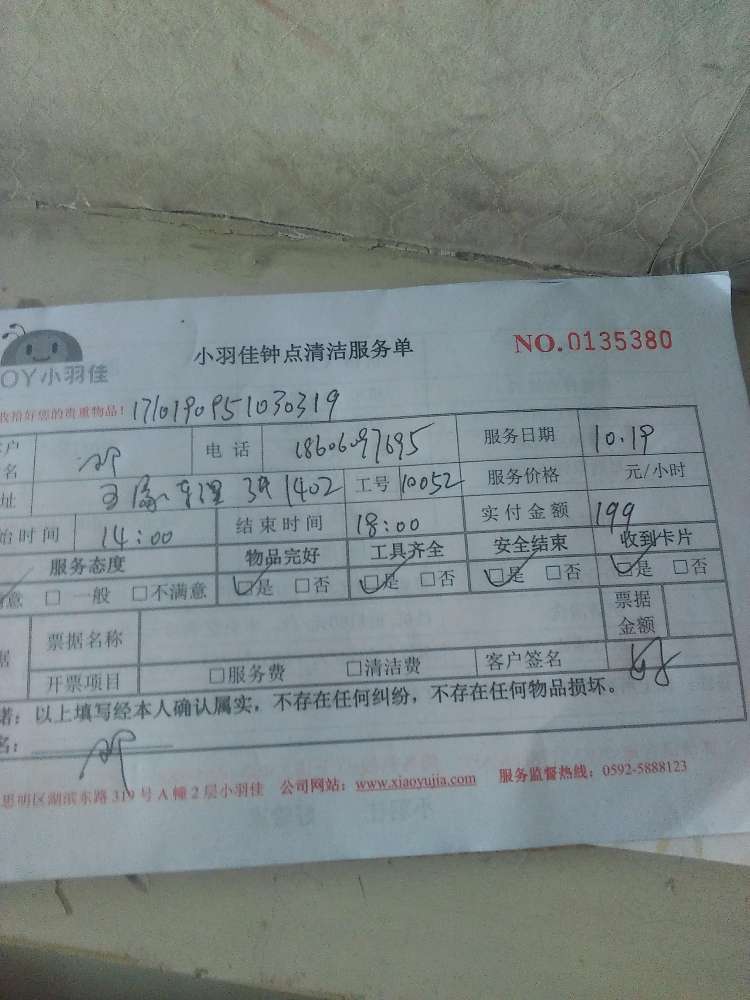 小羽佳钟点清洁服务单 NO.0135380
OY小羽佳
收拾好您的贵重物品! 1710190951030319
户名 电话 18606097695 服务日期 10.19
址 3号1402 工号 10052 服务价格 元/小时
始时间 14:00 结束时间 18:00 实付金额 199
服务态度 物品完好 工具齐全 安全结束 收到卡片
意 □一般 □不满意 □是 □否 □是 □否 □是 □否 □是 □否
据 票据名称 票据金额
开票项目 □服务费 □清洁费 客户签名
诺:以上填写经本人确认属实,不存在任何纠纷,不存在任何物品损坏。
名:
思明区湖滨东路319号A幢2层小羽佳 公司网站:www.xiaoyujia.com 服务监督热线:0592-5888123